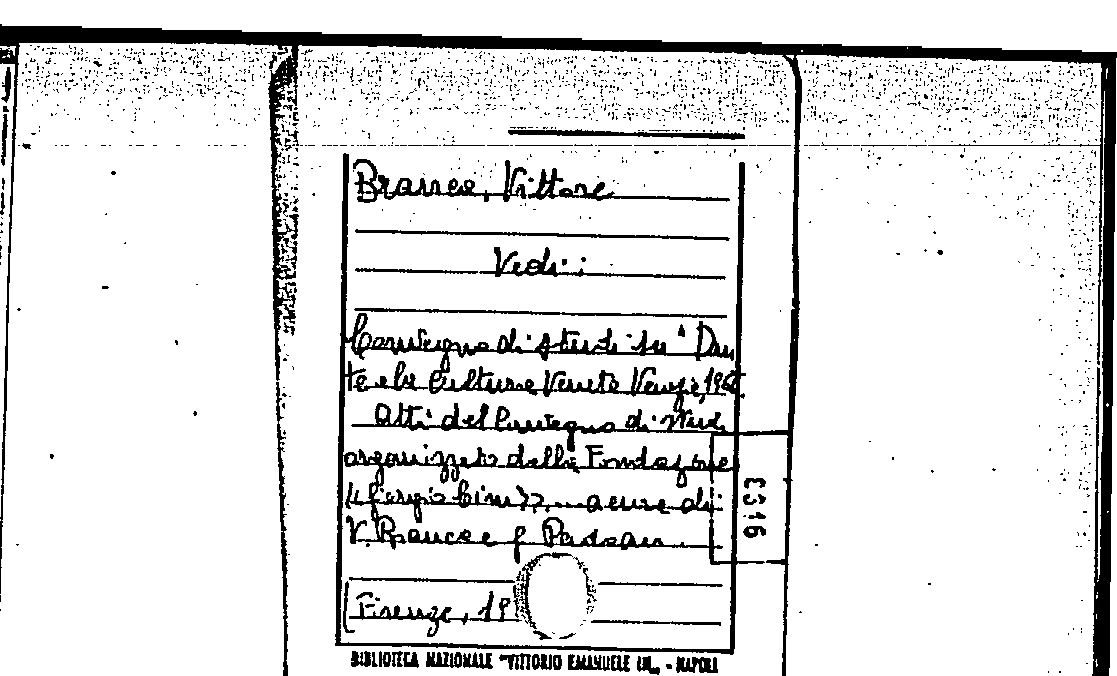 Branca, Vittore
Vedi:
Convegno di studi su "Dan
te e la cultura Veneta Venezia, 196
Atti del Convegno di studi
organizzato dalla Fondazione
«Giorgio Cini»... a cura di
V. Branca e G. Padoan.
Firenze, 19
E316
BIBLIOTECA NAZIONALE "VITTORIO EMANUELE III„ - NAPOLI